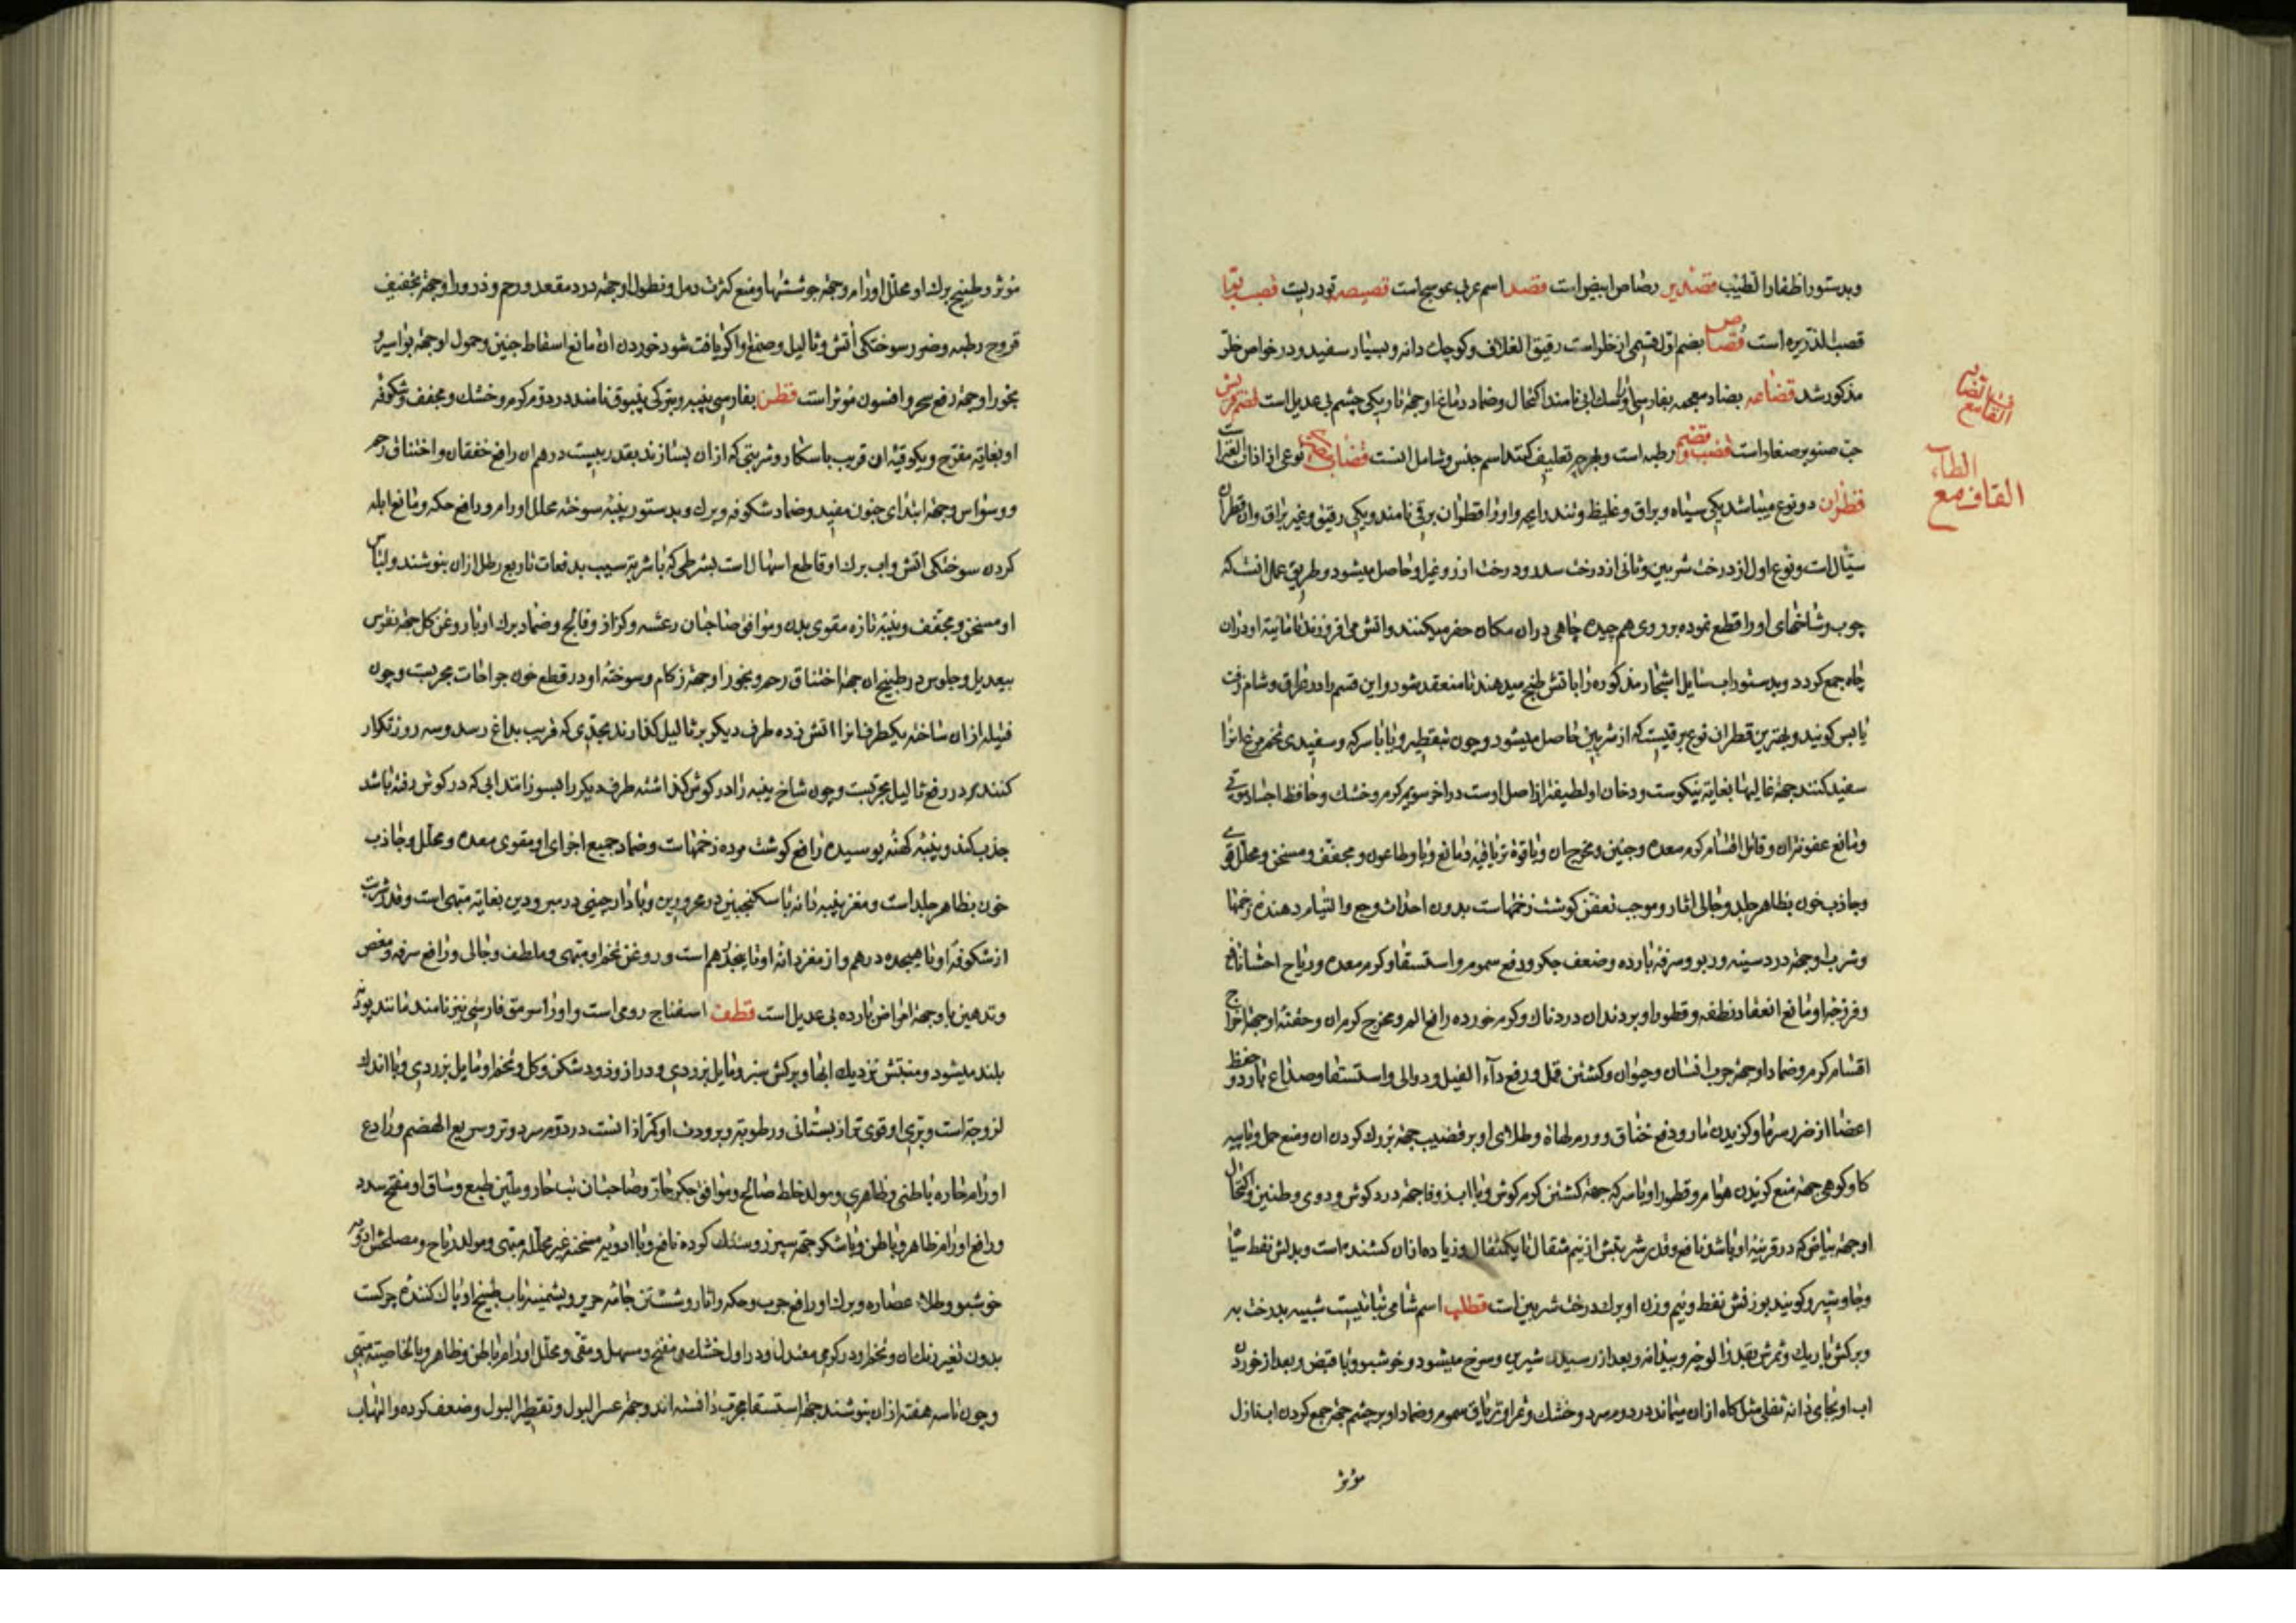 وبدستور اظفار الطیب قصدیر رصاص ابیض است قصد اسم عربی عوسج است قصیصه تودریست قصب بوا
قصب الذریره است قصاص بضم اول قسمی از خلر است رقیق الغلاف و کوچک دانه و بسیار سفید و در خواص خلر
مذکور شد قضاعه بضاد معجمه بفارسی سک ابی نامند اکتحال و ضماد دماغ او جهة تاریکی چشم بی عدیل است قضم قریش
حب صنوبر صغار است قضب و قضیم رطبه است و بهر چه تعلیف کنند اسم جنس و شامل انست قضاب نوعی از اذان الفار است
القاف مع الضاد
القاف مع الطاء
قطران دو نوع میباشد یکی سیاه و براق و غلیظ و تند رایحه و او را قطران برقی نامند و یکی رقیق و غیر براق و ان قطران
سیال است و نوع اول از درخت شربین و ثانی از درخت سدر و درخت ارز و غیر او حاصل میشود و طریق عمل انست که
چوب و شاخهای او را قطع نموده بر روی هم چیده چاهی در ان مکان حفر میکنند و اتش می افروزند تا مائیة او در ان
چاه جمع کردد و بدستور اب سایل اشجار مذکوره را باتش طبخ میدهند تا منعقد شود و این قسم را در عراق و شام زفت
یابس کویند و بهترین قطران نوع برقیست که از شربین حاصل میشود و چون تقطیر و یا با سرکه و سفیدی تخم مرغ انرا
سفید کنند جهة غالیها بغایة نیکوست و دخان او لطیفتر از اصل اوست در اخر سویم کرم و خشک و حافظ اجساد موتی
و مانع عفونت ان و قاتل اقسام کرم معده و جنین و مخرج ان و با قوة تریاقیه و مانع وبا و طاعون و مجفف و مسخن و محلل قوی
و جاذب خون بظاهر جلد و جالی اثار و موجب تعفن کوشت زخمهاست بدون احداث وجع و التیام دهنده زخمها
و شرب او جهة درد سینه و ربو و سرفه بارده و ضعف جکر و رفع سموم و استسقا و کرم معده و ریاح احشا نافع
و فرزجه او مانع انعقاد نطفه و قطور او بر دندان دردناک و کرم خورده رافع الم و مخرج کرم ان و حقنه او جهة اخراج
اقسام کرم و ضماد او جهة جرب انسان و حیوان و کشتن قمل و رفع دآء الفیل و دوالی و استسقا و صداع بارد و حفظ
اعضا از ضرر سرما و کزیدن مار و دفع خناق و ورم لهاة و طلای او بر قضیب جهة بزرک کردن ان و منع حمل و با پیه
کاو کوهی جهة منع کزیدن هوام و قطور او با سرکه جهة کشتن کرم کوش و با اب زوفا جهة درد کوش و دوی و طنین و اکتحال
او جهة بیاض که در قرنیه او باشد نافع و قدر شربتش از نیم مثقال تا یکمثقال و زیاده از ان کشنده است و بدلش نفط سیاه
و جاوشیر و کویند بوزنش نفط و نیم وزن او برک درخت شربین است قطلب اسم شامی نباتیست شبیه بدرخت به
و برکش باریک و ثمرش بقدر الوچه و بیدانه و بعد از رسیدن شیرین و سرخ میشود و خوشبو و با قبض و بعد از خوردن
اب او بجای دانه ثفلی مثل کاه از ان میماند در دوم سرد و خشک و ثمر او تریاق سموم و ضماد او بر چشم جهة جمع کردن اب نازل
مؤثر
موثر و طبیخ برک او محلل اورام و جهة جوششها و منع کثرت دمل و نطول او جهة درد مقعد و رحم و ذرور او جهة تجفیف
قروح رطبه و ضرر سوختکی اتش و ثالیل و صمغ او اکر یافت شود خوردن ان مانع اسقاط جنین و حمول او جهة بواسیر و
بخور او جهة دفع سحر و افسون موثر است قطن بفارسی پنبه و بترکی پنبوق نامند در دوم کرم و خشک و مجفف و شکوفه
او بغایة مفرح و یکوقیه ان قریب باسکار و شربتی که از ان بسازند بقدر بیست درهم ان رافع خفقان و اختناق رحم
و وسواس و جهة ابتدای جنون مفید و ضماد شکوفه و برک و بدستور پنبه سوخته محلل اورام و رافع حکه و مانع ابله
کردن سوختکی اتش و اب برک او قاطع اسهال است بشرطی که با شربت سیب بدفعات تا ربع رطل از ان بنوشند و لباس
او مسخن و مجفف و پنبه تازه مقوی بدن و موافق صاحبان رعشه و کزاز و فالج و ضماد برک او با روغن کل جهة نقرس
بیعدیل و جلوس در طبیخ ان جهة اختناق رحم و بخور او جهة زکام و سوخته او در قطع خون جراحات مجربست و چون
فتیله از ان ساخته یکطرف انرا اتش زده طرف دیکر بر ثالیل کذارند بحدی که قریب بداغ رسد و سه روز تکرار
کنند در رفع ثالیل مجربست و چون شاخ پنبه را در کوش کذاشته طرف دیکر را بسوزانند ابی که در کوش رفته باشد
جذب کند و پنبه کهنه پوسیده رافع کوشت مرده زخمهاست و ضماد جمیع اجزای او مقوی معده و محلل و جاذب
خون بظاهر جلد است و مغز پنبه دانه با سکنجبین در محرورین و با دارچینی در مبرودین بغایة مبهی است و قدر شربت
از شکوفه او تا هیجده درهم و از مغز دانه او تا پنجدرهم است و روغن تخم او مبهی و ملطف و جالی و رافع سرفه و مغص
و تدهین با و جهة امراض بارده بی عدیل است قطف اسفناج رومی است و او را سرمق فارسی نیز نامند مانند بوته
بلند میشود و منبتش نزدیک ابها و برکش سبز و مایل بزردی و دراز و زود شکن و کل و تخم او مایل بزردی و با اندک
لزوجة است و بری او قوی تر از بستانی و رطوبة و برودت او کمتر از انست در دوم سرد و تر و سریع الهضم و رادع
اورام حاره باطنی و ظاهری و مولد خلط صالح و موافق جکر حار و صاحبان تب حار و ملین طبع و ساق او مفتح سدد
و رافع اورام ظاهر و باطن و با شکر جهة سپرز و سنک کرده نافع و با ادویه مسخنه غیر محلله مبهی و مولد ریاح و مصلحش ادویه
خوشبو و طلاء عصاره و برک او رافع جرب و حکه و اثار و شستن جامه حریر و پشمینه باب طبیخ او پاک کننده چرکست
بدون تغیر رنک ان و تخم او در کرمی معتدل و در اول خشک و مفتح و مسهل و مقی و محلل اورام باطن و ظاهر و بالخاصیته مبهی
و چون تا سه هفته از ان بنوشند جهة استسقا مجرب دانسته اند و جهة عسر البول و تقطیر البول و ضعف کرده و التهاب